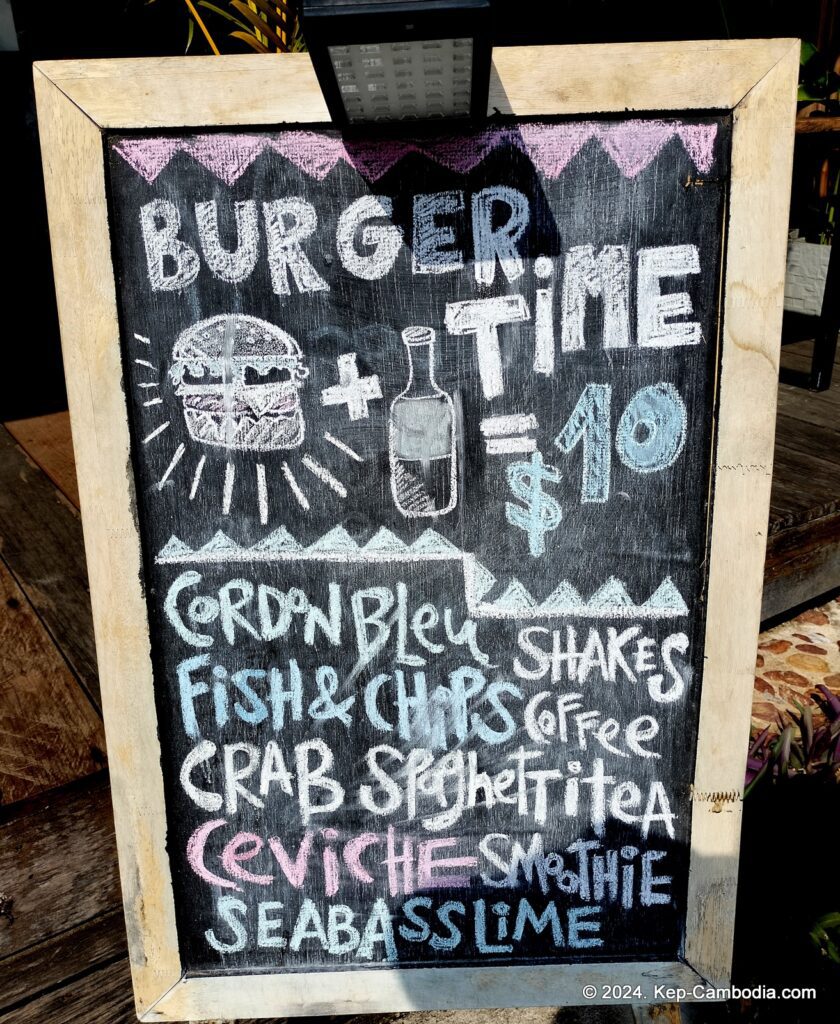 BURGER
TIME
+
= $10
CORDON BLeu
SHAKES
FISH & CHIPS
COFFee
CRAB SPaghetti
teA
CeVICHE
SMOOTHIE
SEABASS LIME
© 2024. Kep-Cambodia.com